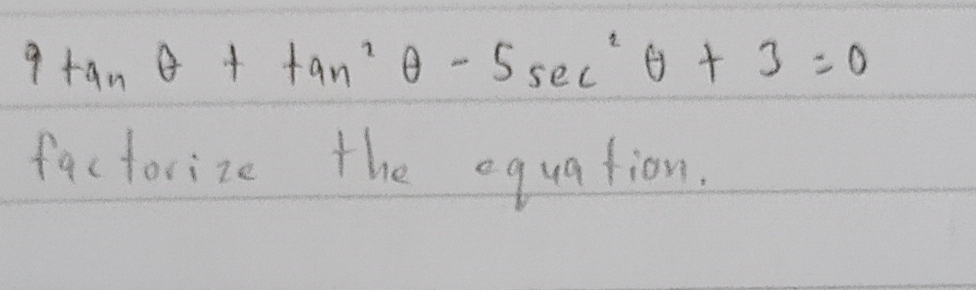 9 tan θ + tan² θ - 5 sec² θ + 3 = 0
factorize the equation.